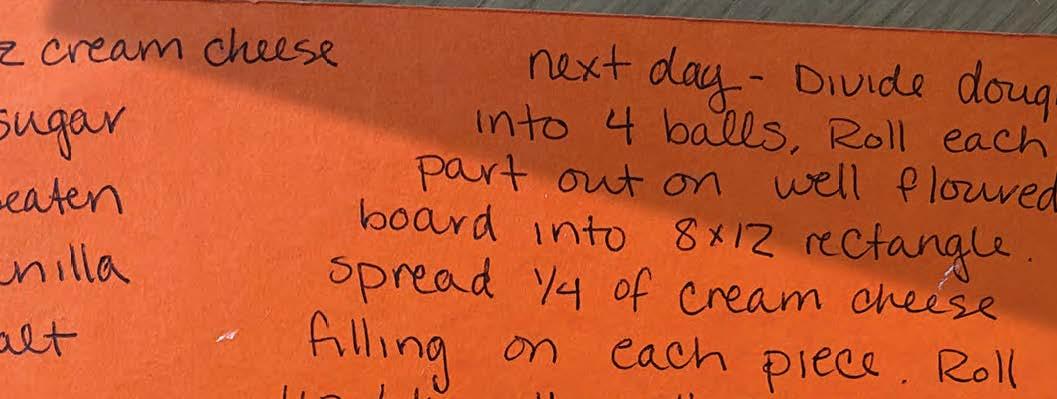 z cream cheese
sugar
eaten
nilla
alt
next day - Divide doug
into 4 balls. Roll each
part out on well floured
board into 8x12 rectangle.
spread 1/4 of cream cheese
filling on each piece. Roll